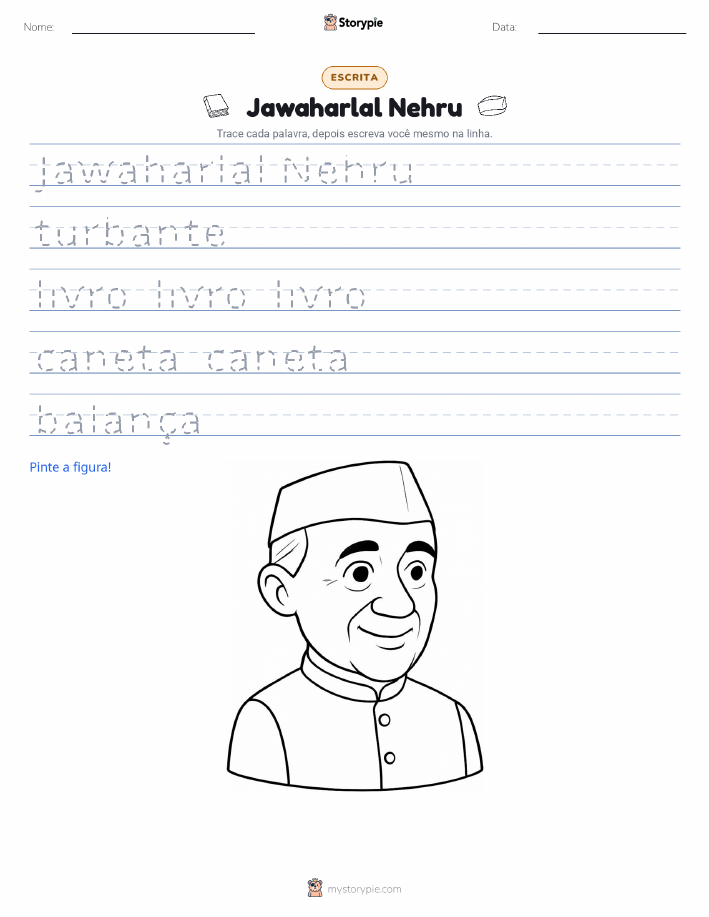 Nome: Storypie Data:
ESCRITA
Jawaharlal Nehru
Trace cada palavra, depois escreva você mesmo na linha.
Jawaharlal Nehru
turbante
livro livro livro
caneta caneta
balança
Pinte a figura!
mystorypie.com